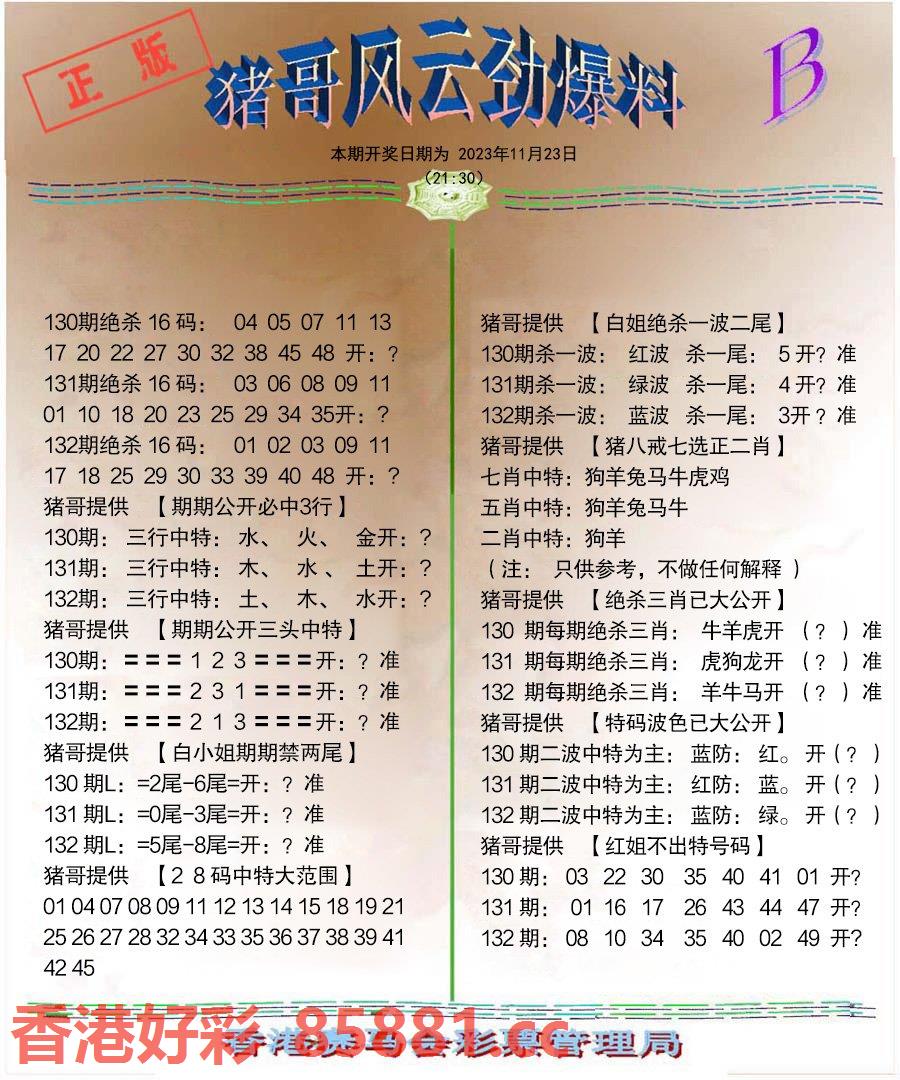 正版
猪哥风云劲爆料
B
本期开奖日期为 2023年11月23日
(21:30)
130期绝杀 16 码： 04 05 07 11 13
17 20 22 27 30 32 38 45 48 开：?
131期绝杀 16 码： 03 06 08 09 11
01 10 18 20 23 25 29 34 35开：?
132期绝杀 16 码： 01 02 03 09 11
17 18 25 29 30 33 39 40 48 开：?
猪哥提供 【期期公开必中3行】
130期： 三行中特： 水、 火、 金开：?
131期： 三行中特： 木、 水、 土开：?
132期： 三行中特： 土、 木、 水开：?
猪哥提供 【期期公开三头中特】
130期：=== 1 2 3 ===开：? 准
131期：=== 2 3 1 ===开：? 准
132期：=== 2 1 3 ===开：? 准
猪哥提供 【白小姐期期禁两尾】
130 期L：=2尾-6尾=开：? 准
131 期L：=0尾-3尾=开：? 准
132 期L：=5尾-8尾=开：? 准
猪哥提供 【2 8 码中特大范围】
01 04 07 08 09 11 12 13 14 15 18 19 21
25 26 27 28 32 34 33 35 36 37 38 39 41
42 45
猪哥提供 【白姐绝杀一波二尾】
130期杀一波： 红波 杀一尾： 5 开? 准
131期杀一波： 绿波 杀一尾： 4 开? 准
132期杀一波： 蓝波 杀一尾： 3开 ? 准
猪哥提供 【猪八戒七选正二肖】
七肖中特：狗羊兔马牛虎鸡
五肖中特：狗羊兔马牛
二肖中特：狗羊
(注： 只供参考，不做任何解释 )
猪哥提供 【绝杀三肖已大公开】
130 期每期绝杀三肖： 牛羊虎开 (? ) 准
131 期每期绝杀三肖： 虎狗龙开 (? ) 准
132 期每期绝杀三肖： 羊牛马开 (? ) 准
猪哥提供 【特码波色已大公开】
130 期二波中特为主： 蓝防： 红。 开 (? )
131 期二波中特为主： 红防： 蓝。 开 (? )
132 期二波中特为主： 蓝防： 绿。 开 (? )
猪哥提供 【红姐不出特号码】
130 期： 03 22 30 35 40 41 01 开?
131 期： 01 16 17 26 43 44 47 开?
132 期： 08 10 34 35 40 02 49 开?
香港好彩 85881.cc
香港赛马会彩票管理局